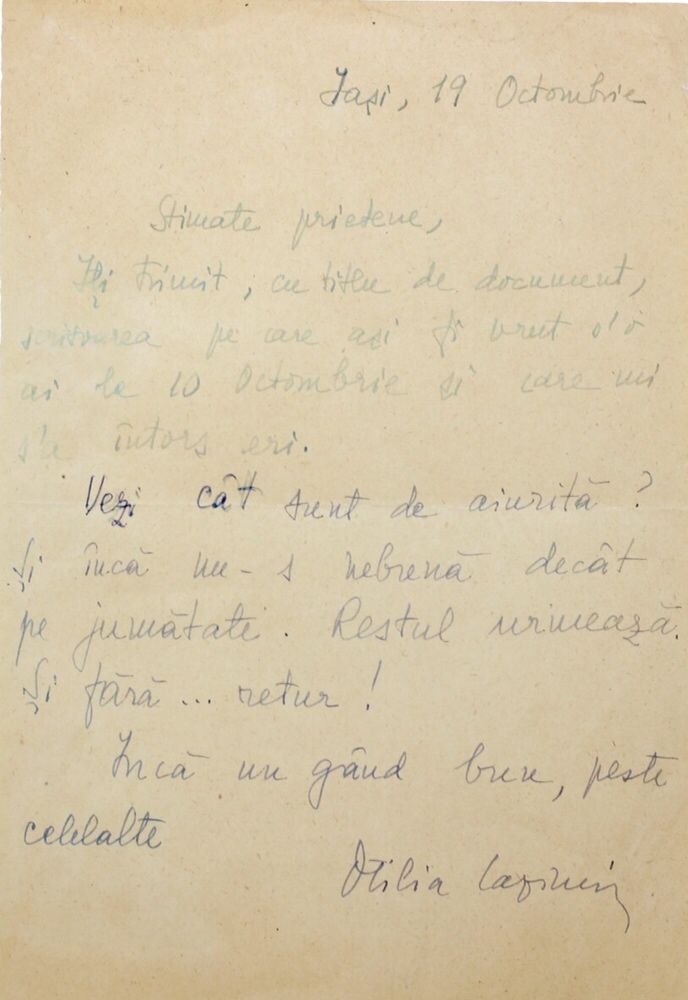 Iași, 19 Octombrie
Stimate prietene,
Iți trimit, cu titlu de document,
scrisoarea pe care ași fi vrut s'o
ai la 10 Octombrie și care mi
s'a întors eri.
Vezi cât sunt de aiurită?
Și încă nu-s nebună decât
pe jumătate. Restul urmează.
Și fără... retur!
Încă un gând bun, peste
celelalte
Otilia Cazimir